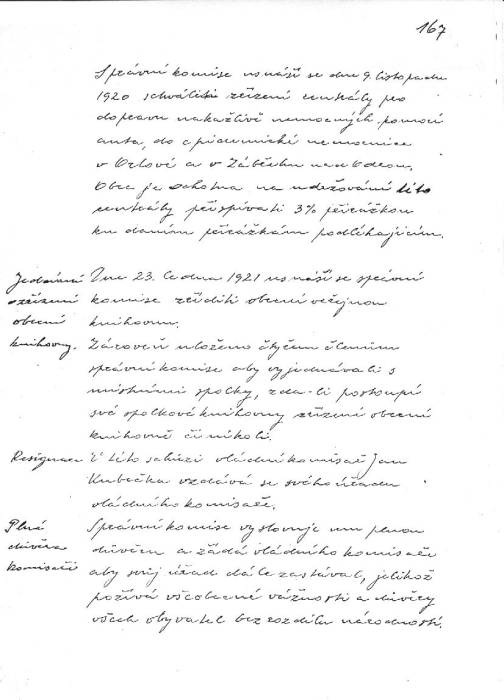 167
Správní komise usnáší se dne 9. listopadu
1920 schváliti zřízení centrály pro
dopravu nakažlivě nemocných pomocí
auta, do epidemické nemocnice
v Orlové a v Zábřehu nad Odrou.
Obec je ochotna na udržování této
centrály přispívati 3% přirážkou
ku daním přirážkám podléhajícím.
Jednání
o zřízení
obecní
knihovny.
Dne 23. ledna 1921 usnáší se správní
komise zříditi obecní veřejnou
knihovnu.
Zároveň uloženo čtyřem členům
správní komise aby vyjednávali s
místními spolky, zda-li postoupí
své spolkové knihovny zřízení obecní
knihovně či nikoli.
Resignace
V této schůzi vládní komisař Jan
Kubečka vzdává se svého úřadu
vládního komisaře.
Plná
důvěra
komisaři
Správní komise vyslovuje mu plnou
důvěru a žádá vládního komisaře
aby svůj úřad dále zastával, jelikož
požívá všeobecné vážnosti a důvěry
všech obyvatel bez rozdílu národnosti.